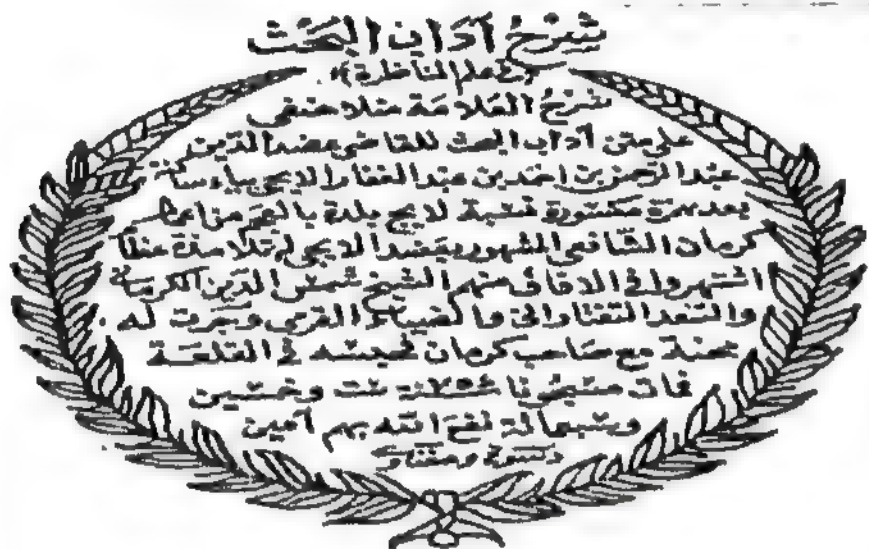 شرح آداب البحث
(في علم المناظرة)
شرح العلامة منلا حنفي
على متن آداب البحث للقاضي عضد الدين
عبد الرحمن بن احمد بن عبد الغفار الايجي بياء ساكنة
بعد همزة مكسورة نسبة لايج بلدة بالعجم من اعمال
كرمان الشافعي المشهور بعضد الايجي له تلامذة عظام
اشتهروا في الافاق منهم الشيخ شمس الدين الكرماني
والسعد التفتازاني والضياء القرمي وجرت له
محنة مع صاحب كرمان فحبسه في القلعة
فمات مسجونا سنة ست وخمسين
وسبعمائة نفع الله بهم آمين